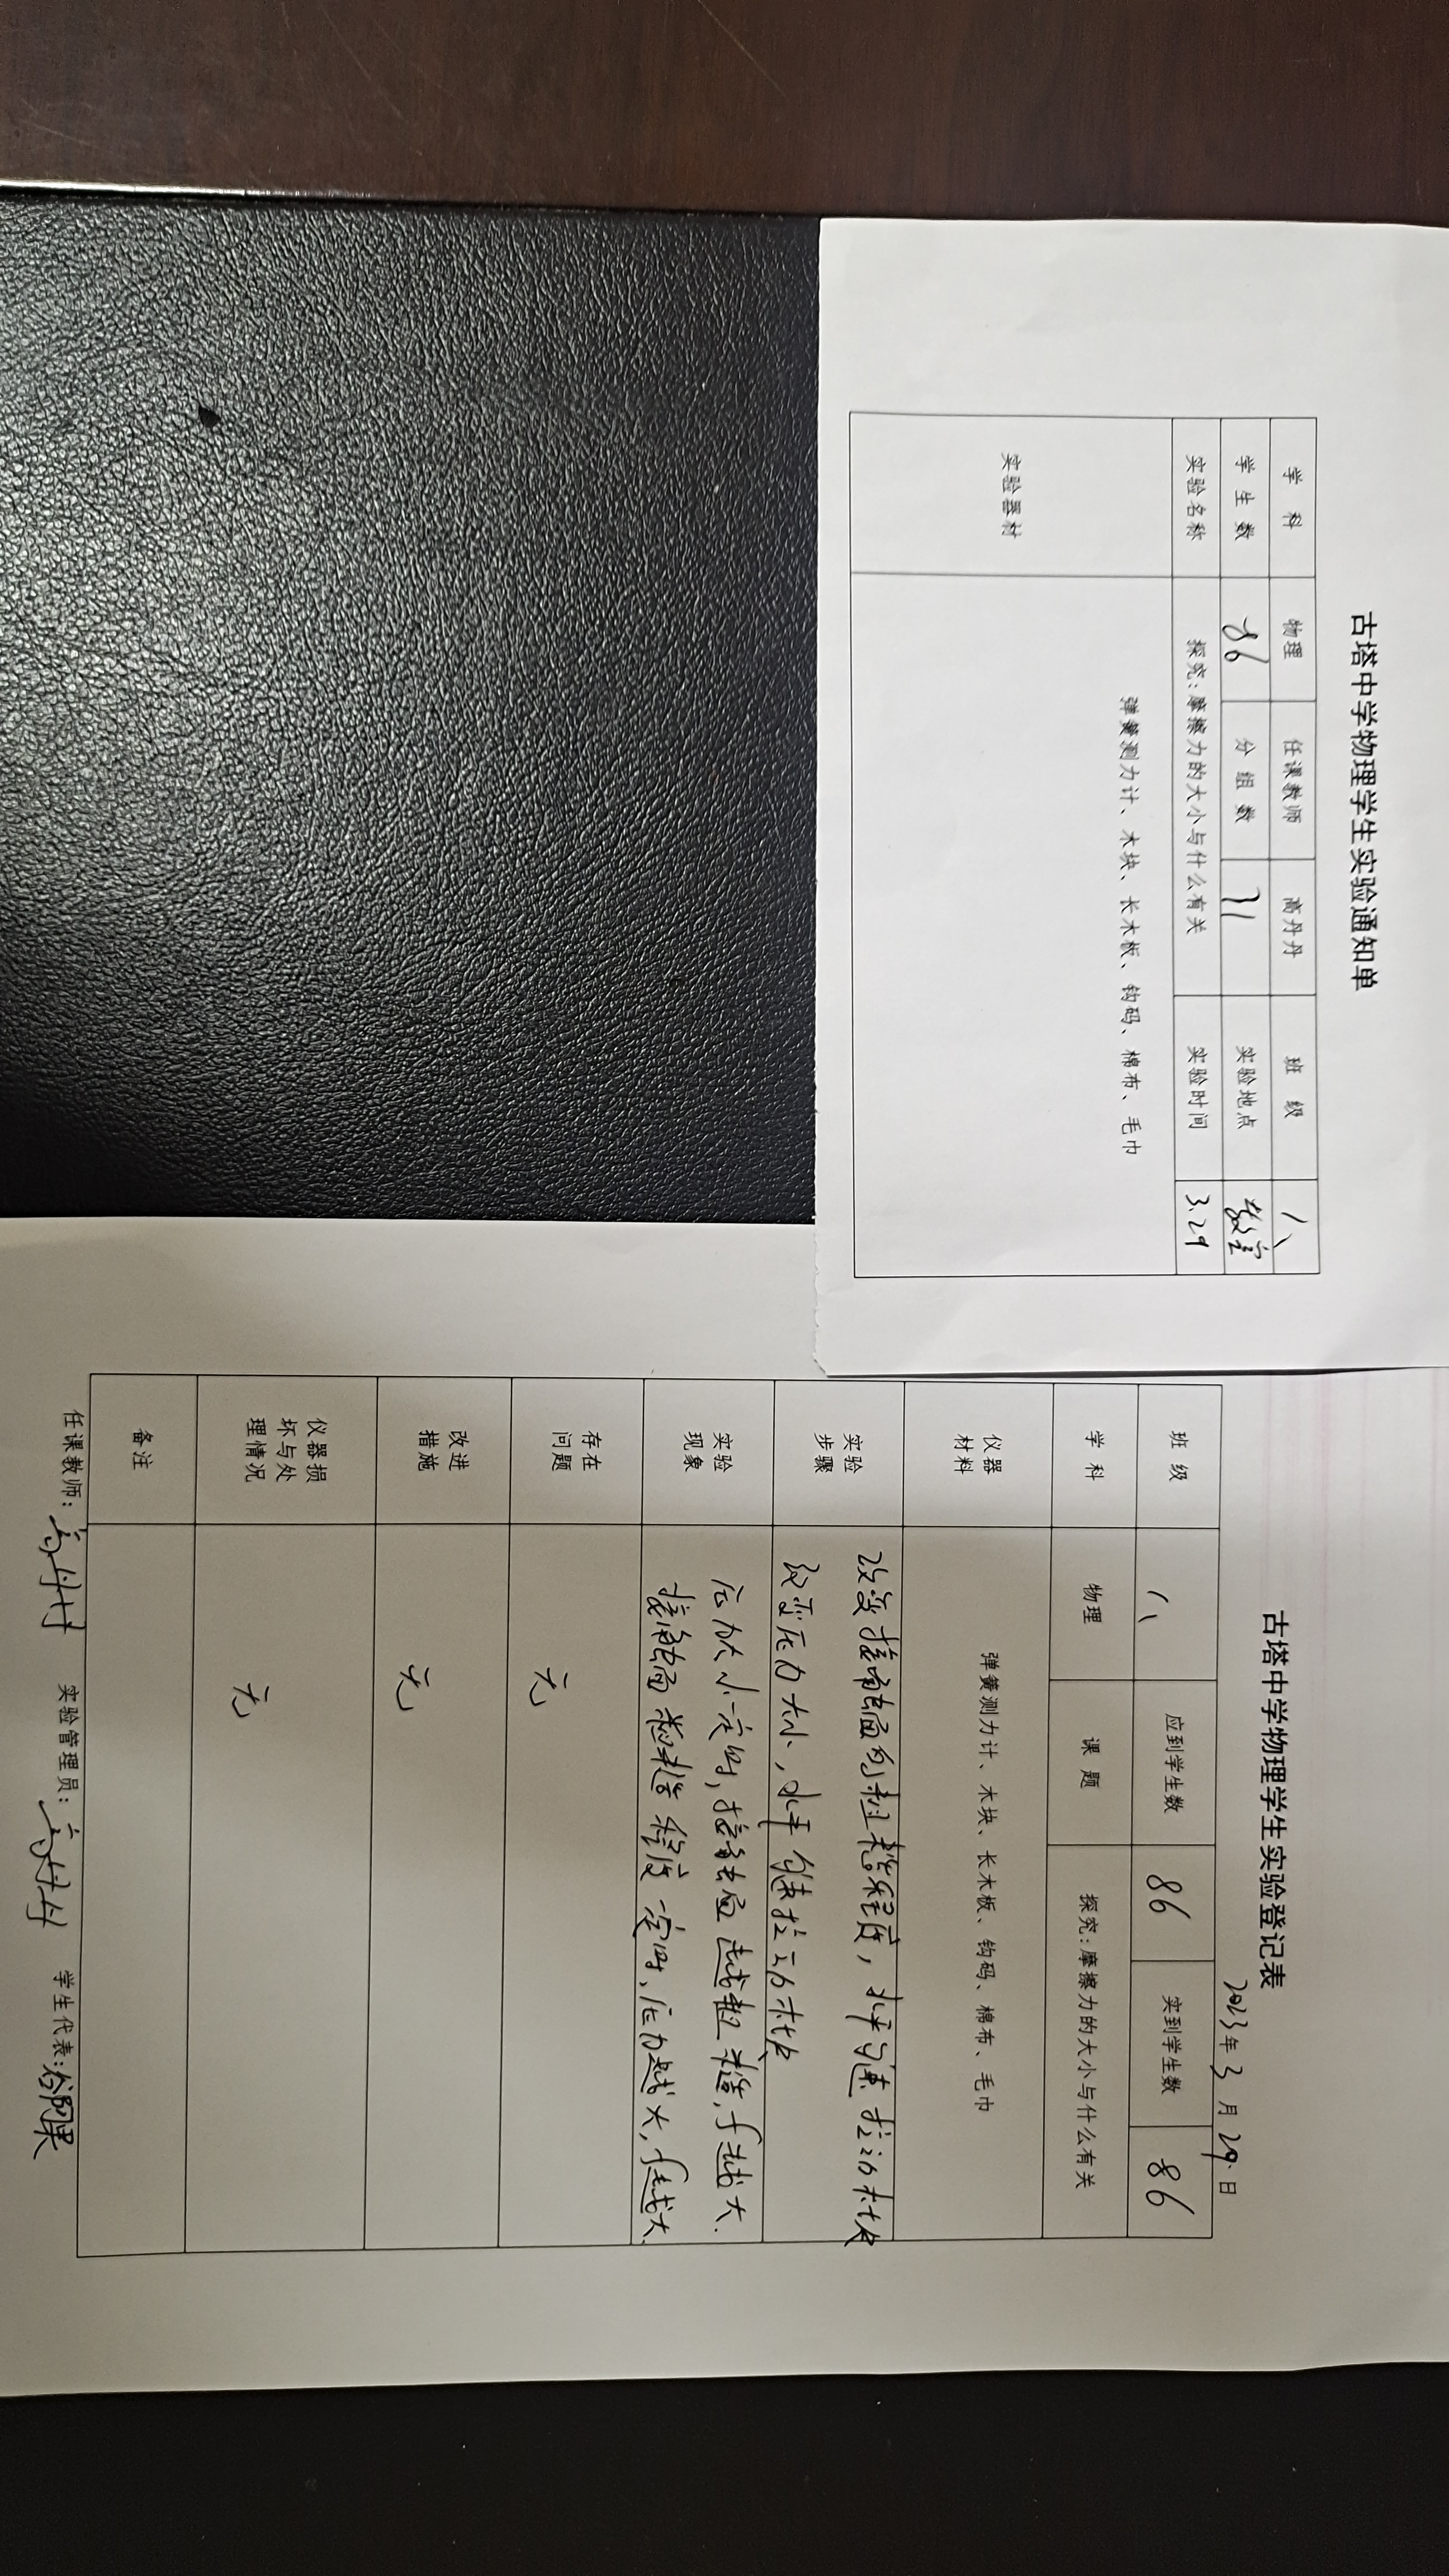 古塔中学物理学生实验通知单
学 科 物理 任课教师 高丹丹 班 级 八
学 生 数 86 分 组 数 21 实验地点 教室
实验名称 探究：摩擦力的大小与什么有关 实验时间 3.29
实验器材 弹簧测力计、木块、长木板、钩码、棉布、毛巾
古塔中学物理学生实验登记表
2023年 3 月 29 日
班 级 八 应到学生数 86 实到学生数 86
学 科 物理 课 题 探究：摩擦力的大小与什么有关
仪器
材料
弹簧测力计、木块、长木板、钩码、棉布、毛巾
实验
步骤
改变接触面的粗糙程度，水平匀速拉动木块
改变压力大小，水平匀速拉动木块
实验
现象
压力大小一定时，接触面越粗糙，f越大.
接触面粗糙程度一定时，压力越大，f越大.
存在
问题
无
改进
措施
无
仪器损
坏与处
理情况
无
备注
任课教师：高丹丹 实验管理员：高丹丹 学生代表：